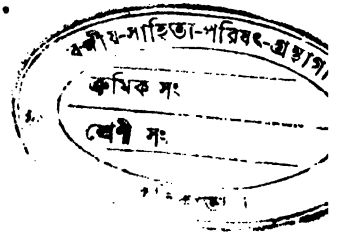 বঙ্গীয়-সাহিত্য-পরিষৎ-গ্রন্থাগা
ক্রমিক সং
শ্রেণী সং